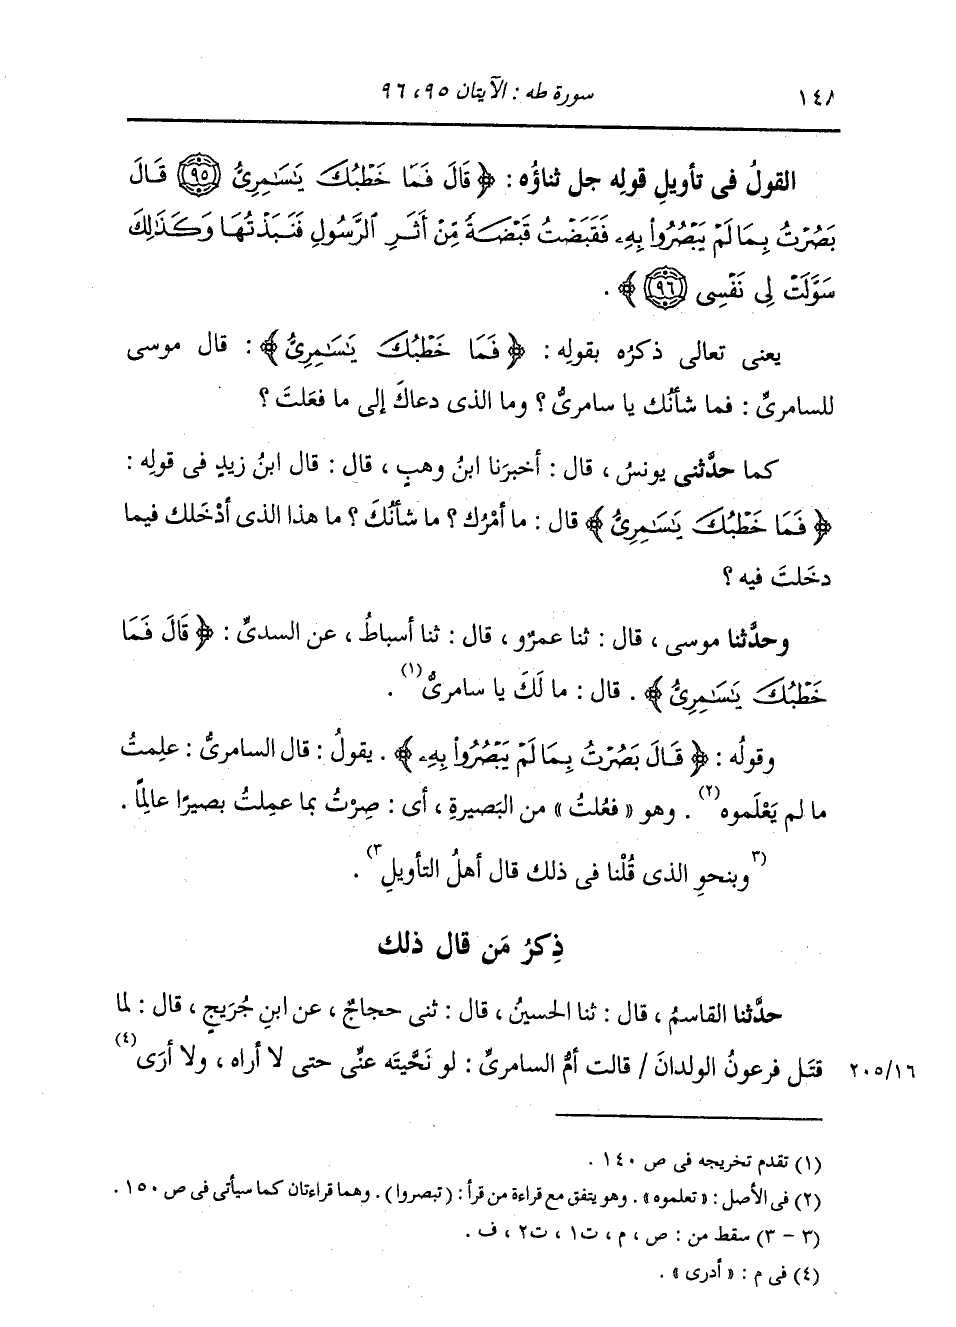 ١٤٨ سورة طه : الآيتان ٩٥ ، ٩٦
القولُ فى تأويلِ قولِه جل ثناؤُه : ﴿ قَالَ فَمَا خَطْبُكَ يَٰسَٰمِرِىُّ ٩٥ قَالَ
بَصُرْتُ بِمَا لَمْ يَبْصُرُوا۟ بِهِۦ فَقَبَضْتُ قَبْضَةً مِّنْ أَثَرِ ٱلرَّسُولِ فَنَبَذْتُهَا وَكَذَٰلِكَ
سَوَّلَتْ لِى نَفْسِى ٩٦ ﴾ .
يعنى تعالى ذكرُه بقولِه : ﴿ فَمَا خَطْبُكَ يَٰسَٰمِرِىُّ ﴾ : قال موسى
للسامرىِّ : فما شأنُك يا سامرىُّ ؟ وما الذى دعاكَ إلى ما فعَلتَ ؟
كما حدَّثنى يونسُ ، قال : أخبرَنا ابنُ وهبٍ ، قال : قال ابنُ زيدٍ فى قولِه :
﴿ فَمَا خَطْبُكَ يَٰسَٰمِرِىُّ ﴾ قال : ما أمْرُك ؟ ما شأنُكَ ؟ ما هذا الذى أدْخَلك فيما
دخَلتَ فيه ؟
وحدَّثنا موسى ، قال : ثنا عمرٌو ، قال : ثنا أسباطُ ، عن السدىِّ : ﴿ قَالَ فَمَا
خَطْبُكَ يَٰسَٰمِرِىُّ ﴾ . قال : ما لَكَ يا سامرىُّ(١) .
وقولُه : ﴿ قَالَ بَصُرْتُ بِمَا لَمْ يَبْصُرُوا۟ بِهِۦ ﴾ . يقولُ : قال السامرىُّ : علِمتُ
ما لم يَعْلَموه(٢) . وهو « فعُلتُ » من البَصيرةِ ، أى : صِرْتُ بما عمِلتُ بصيرًا عالِمًا .
(٣وبنحوِ الذى قُلْنا فى ذلك قال أهلُ التأويلِ٣) .
ذِكرُ مَن قال ذلك
حدَّثنا القاسمُ ، قال : ثنا الحسينُ ، قال : ثنى حجاجٌ ، عن ابنِ جُرَيجٍ ، قال : لما
٢٠٥/١٦ قتَل فرعونُ الولدانَ / قالت أمُّ السامرىِّ : لو نَحَّيتَه عنِّى حتى لا أراه ، ولا أرَى(٤)
(١) تقدم تخريجه فى ص ١٤٠ .
(٢) فى الأصل : « تعلموه » . وهو يتفق مع قراءة من قرأ : ( تبصروا ) . وهما قراءتان كما سيأتى فى ص ١٥٠ .
(٣ - ٣) سقط من : ص ، م ، ت١ ، ت٢ ، ف .
(٤) فى م : « أدرى » .